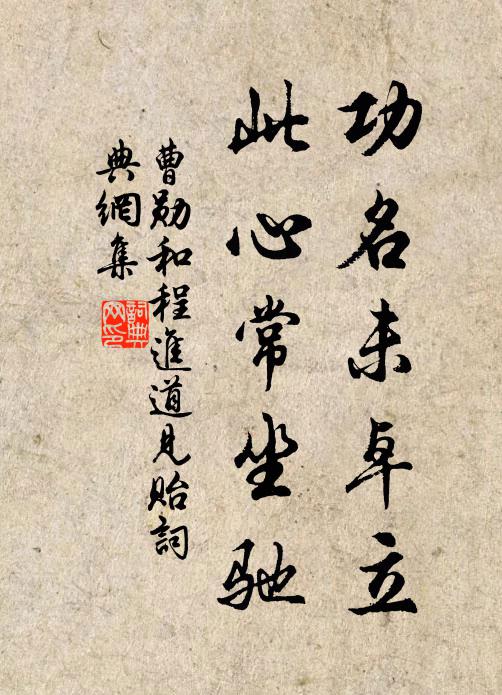 功名未卓立
此心常坐驰
曹勋和程進道見貽詞
典網集
詞典網印